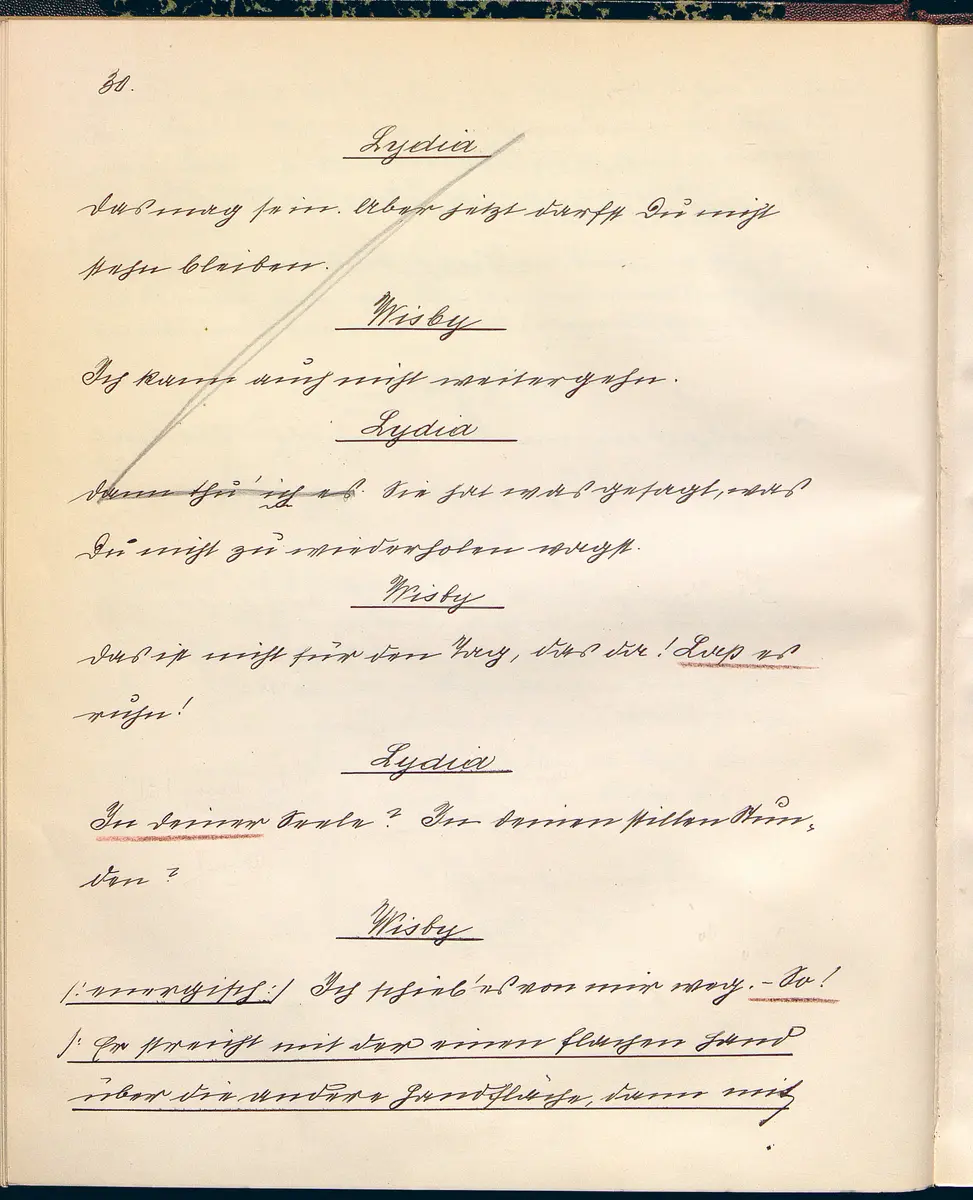 30.
Lydia
Das mag sein. Aber jetzt darfst Du nicht
stehn bleiben.
Wisby
Ich kann auch nicht weitergehn.
Lydia
Dann thu' ich es. Sie hat was gesagt, was
Du nicht zu wiederholen wagst.
Wisby
Das ist nicht für den Tag, das da! Laß es
ruhn!
Lydia
In deiner Seele? In deinen stillen Stun-
den?
Wisby
/: energisch :/ Ich schieb' es von mir weg. - So!
/: Er streicht mit der einen flachen Hand
über die andere Handfläche, dann mit